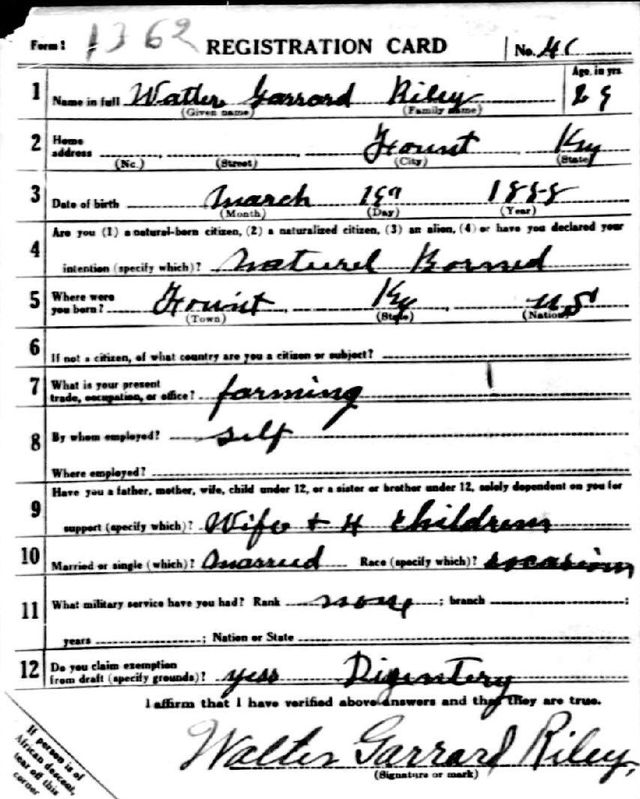 Form 1 1362 REGISTRATION CARD No. 46
1 Name in full Walter Garrard Riley Age, in yrs. 29
(Given name) (Family name)
2 Home address Fount Ky
(No.) (Street) (City) (State)
3 Date of birth March 19 1888
(Month) (Day) (Year)
4 Are you (1) a natural-born citizen, (2) a naturalized citizen, (3) an alien, (4) or have you declared your
intention (specify which)? Naturel Borned
5 Where were you born? Fount Ky US
(Town) (State) (Nation)
6 If not a citizen, of what country are you a citizen or subject?
7 What is your present trade, occupation, or office? farming
8 By whom employed? self
Where employed?
9 Have you a father, mother, wife, child under 12, or a sister or brother under 12, solely dependent on you for
support (specify which)? Wife + 4 childrem
10 Married or single (which)? married Race (specify which)?
11 What military service have you had? Rank none ; branch ;
years ; Nation or State
12 Do you claim exemption from draft (specify grounds)? yess
I affirm that I have verified above answers and that they are true.
Walter Garrard Riley
(Signature or mark)
If person is of
African descent,
tear off this
corner